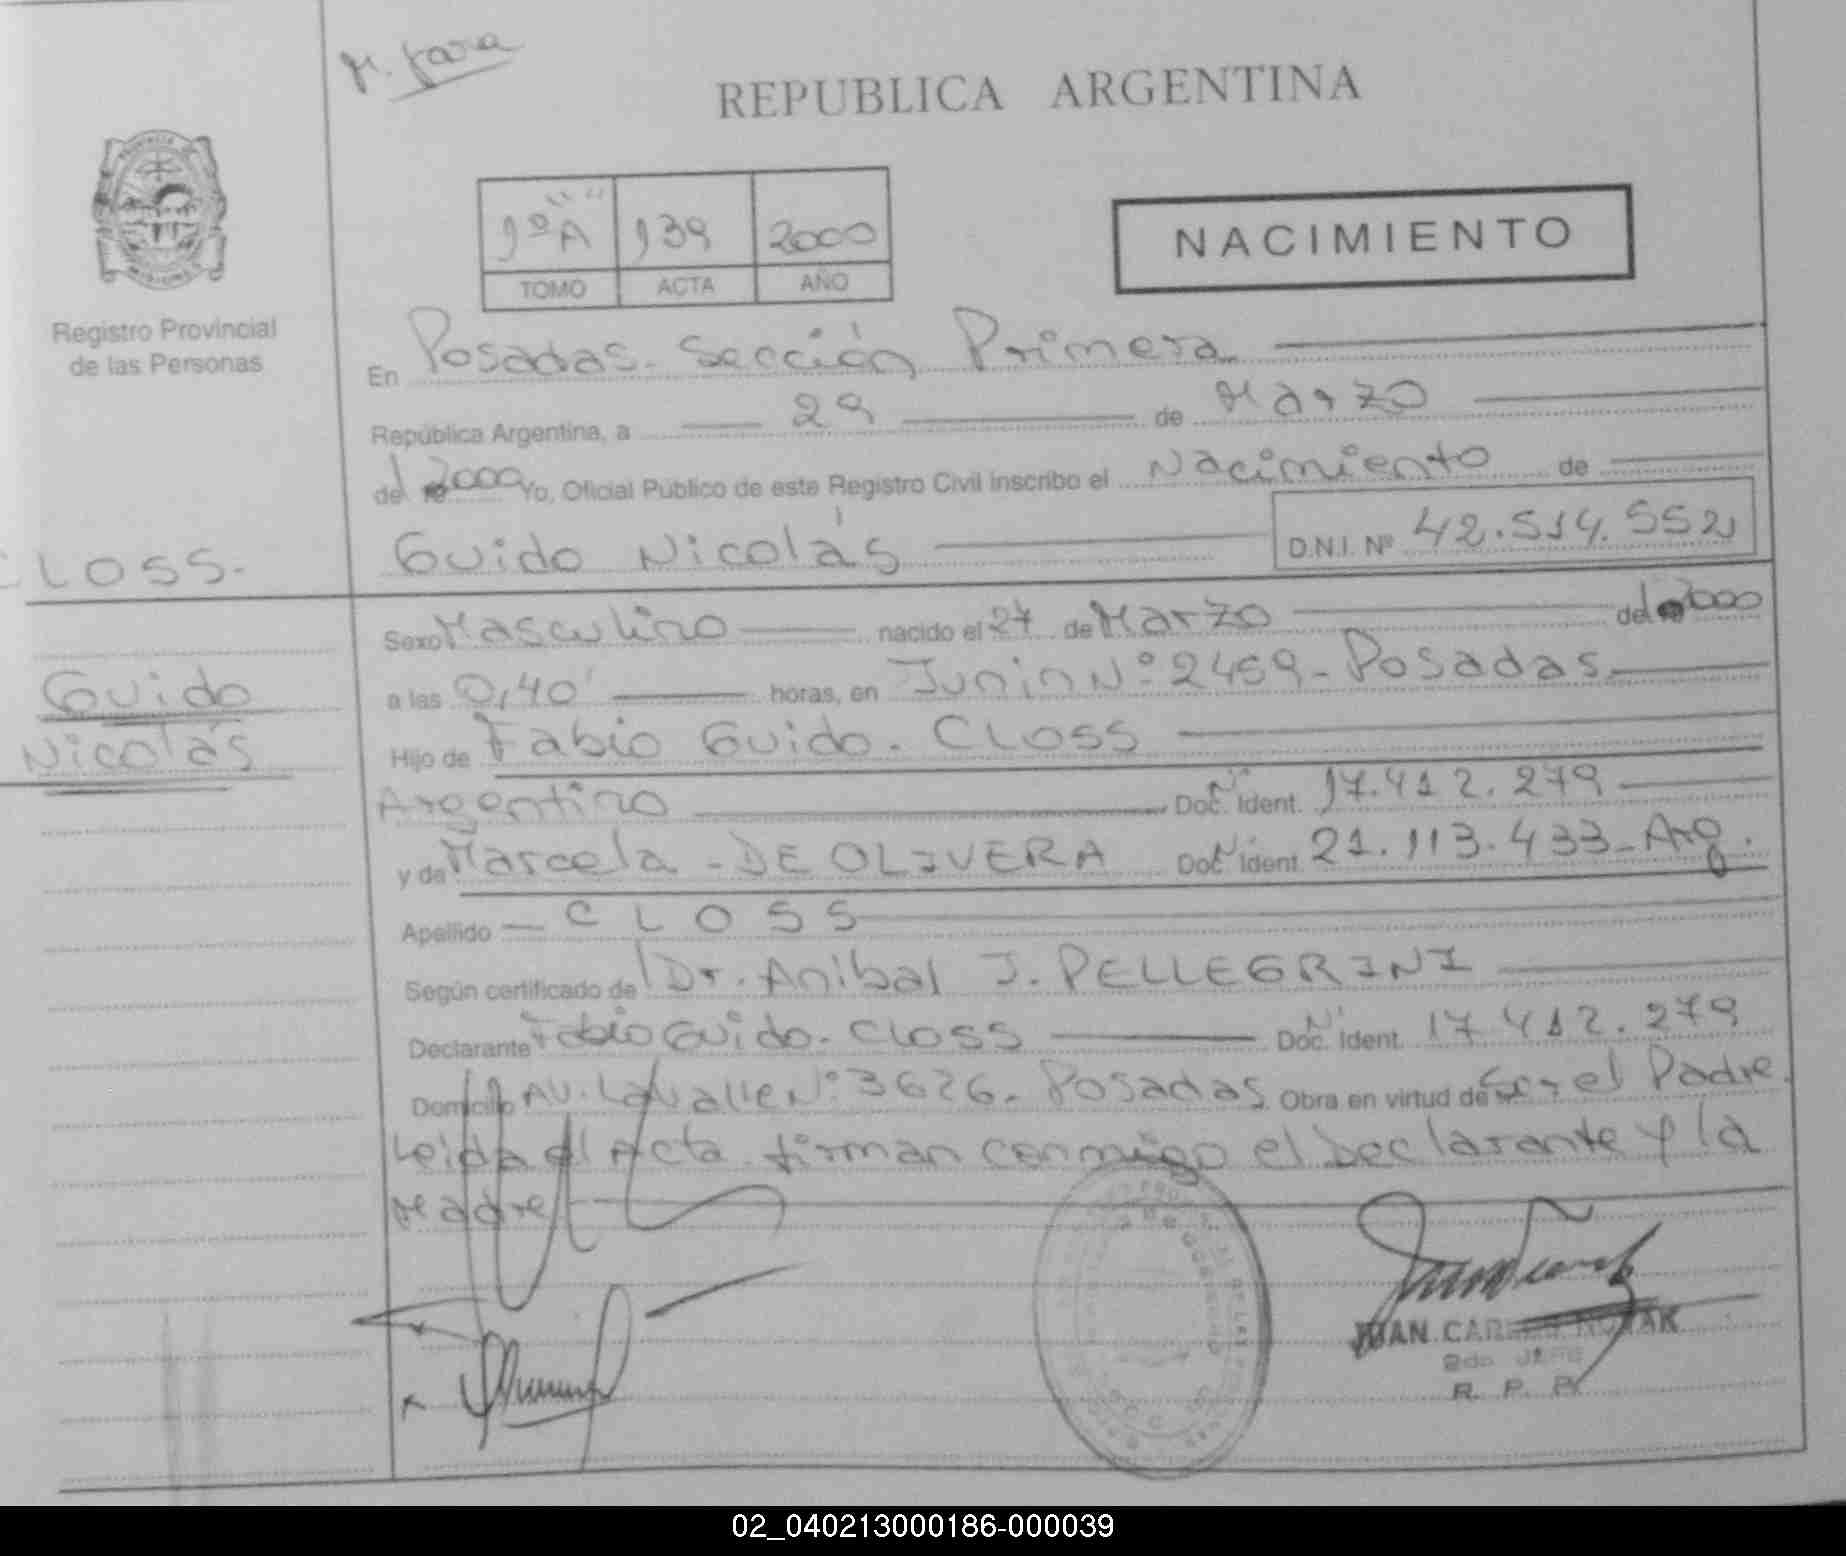 REPUBLICA ARGENTINA
1º "A" 139 2000
TOMO ACTA AÑO
NACIMIENTO
Registro Provincial
de las Personas
En Posadas. Sección Primera
República Argentina, a 29 de Marzo
del 2000 Yo, Oficial Público de este Registro Civil inscribo el Nacimiento de
Guido Nicolás D.N.I. Nº 42.514.552
CLOSS.
Guido
Nicolás
Sexo Masculino nacido el 27 de Marzo del 2000
a las 0,40' horas, en Junin Nº 2459 - Posadas
Hijo de Fabio Guido. CLOSS
Argentino Doc. Ident. Nº 17.412.279
y de Marcela - DE OLIVERA Doc. Ident. Nº 21.113.433 - Arg.
Apellido - CLOSS
Según certificado de Dr. Anibal J. PELLEGRINI
Declarante Fabio Guido. CLOSS Doc. Ident. Nº 17.412.279
Domicilio AV. Lavalle Nº 3626. Posadas. Obra en virtud de Ser el Padre.
Leida el Acta firman conmigo el Declarante y la
Madre
JUAN CARLOS NOVAK
2do. JEFE
R. P. P.
02_040213000186-000039